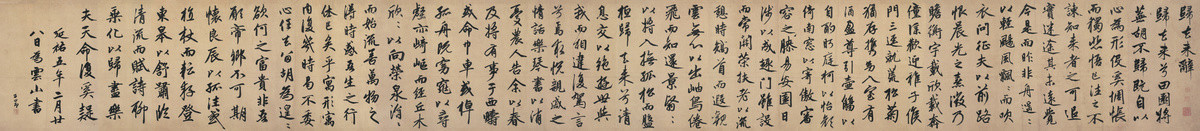 歸去來辭
歸去來兮田園將
蕪胡不歸既自以
心為形役奚惆悵
而獨悲悟已往之不
諫知來者之可追
迷途其未遠覺
今是而昨非舟遙遙
以輕颺風飄飄而吹
衣問征夫以前路
恨晨光之熹微乃
瞻衡宇載欣載奔
僮僕歡迎稚子候
門三逕就荒松菊
猶存攜幼入室有
酒盈尊引壺觴以
自酌眄庭柯以怡顏
倚南窗以寄傲審
容膝之易安園日
涉以成趣門雖設
而常關策扶老以流
憩時矯首而遐觀
雲無心以出岫鳥倦
飛而知還景翳翳
以將入撫孤松而盤
桓歸去來兮請
息交以絕遊世與
我而相違復駕言
兮焉求悅親戚之
情話樂琴書以消
憂農人告余以春
及將有事乎西疇
或命巾車或棹
孤舟既窈窕以尋
壑亦崎嶇而經丘木
欣欣以向榮泉涓涓
而始流善萬物之
得時感吾生之行
休已矣乎寓形宇
內復幾時曷不委
心任去留胡為遑遑
欲何之富貴非吾
願帝鄉不可期
懷良辰以孤往或
植杖而耘耔登
東皋以舒嘯臨
清流而賦詩聊
乘化以歸盡樂
夫天命復奚疑
延祐五年二月廿
八日為雲山書 子昂